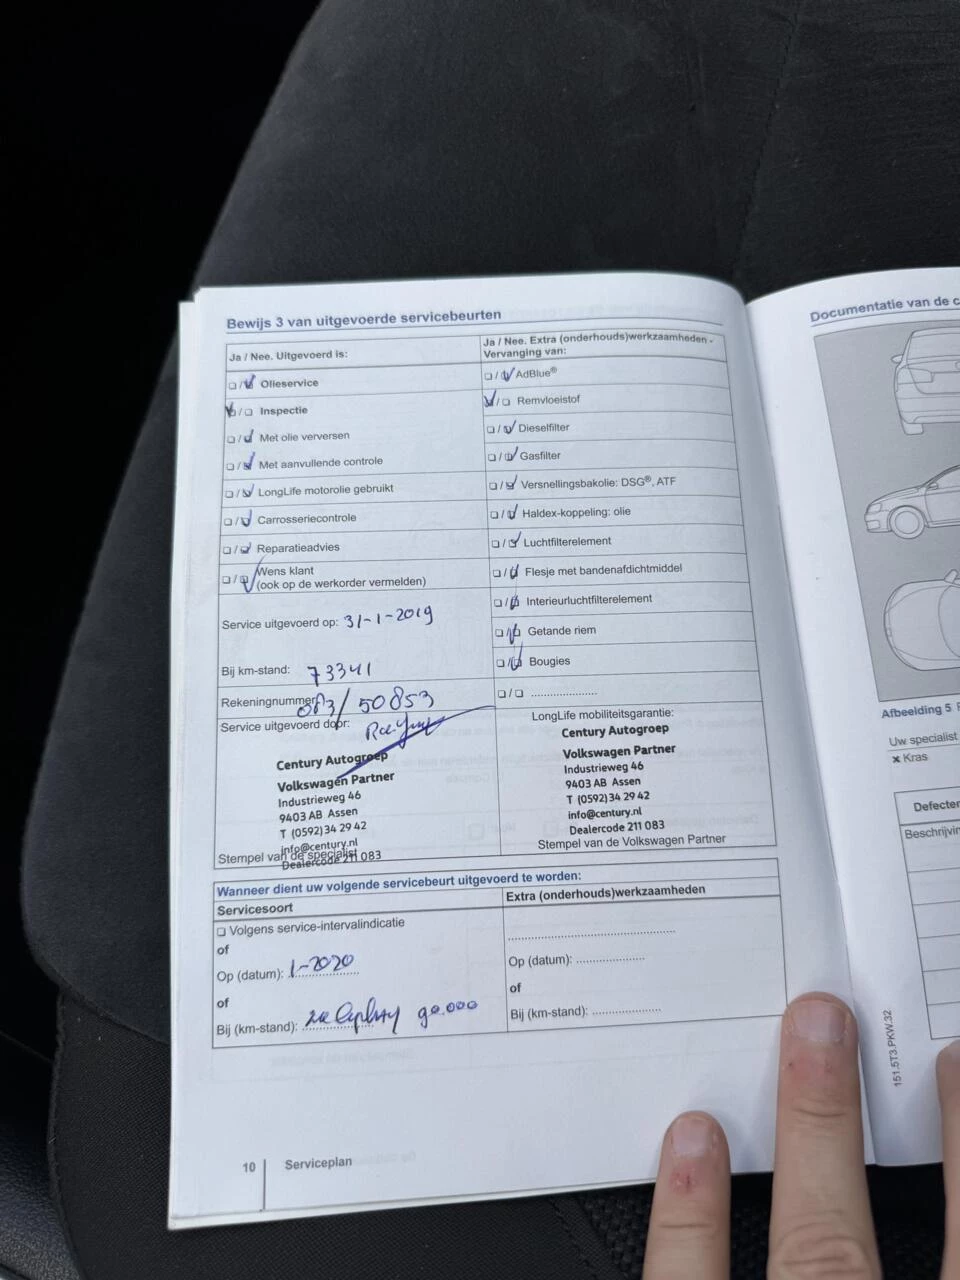 Bewijs 3 van uitgevoerde servicebeurten
Ja / Nee. Uitgevoerd is:
☐ / ☑ Olieservice
☑ / ☐ Inspectie
☐ / ☑ Met olie verversen
☐ / ☑ Met aanvullende controle
☐ / ☑ LongLife motorolie gebruikt
☐ / ☑ Carrosseriecontrole
☐ / ☑ Reparatieadvies
☐ / ☑ Wens klant
(ook op de werkorder vermelden)
Service uitgevoerd op: 31-1-2019
Bij km-stand: 73341
Rekeningnummer: 083/50853
Service uitgevoerd door:
Century Autogroep
Volkswagen Partner
Industrieweg 46
9403 AB Assen
T (0592)34 29 42
info@century.nl
Dealercode 211 083
Stempel van de specialist
Ja / Nee. Extra (onderhouds)werkzaamheden -
Vervanging van:
☐ / ☑ AdBlue®
☑ / ☐ Remvloeistof
☐ / ☑ Dieselfilter
☐ / ☑ Gasfilter
☐ / ☑ Versnellingsbakolie: DSG®, ATF
☐ / ☑ Haldex-koppeling: olie
☐ / ☑ Luchtfilterelement
☐ / ☑ Flesje met bandenafdichtmiddel
☐ / ☑ Interieurluchtfilterelement
☐ / ☑ Getande riem
☐ / ☑ Bougies
☐ / ☐ .....................
LongLife mobiliteitsgarantie:
Century Autogroep
Volkswagen Partner
Industrieweg 46
9403 AB Assen
T (0592)34 29 42
info@century.nl
Dealercode 211 083
Stempel van de Volkswagen Partner
Wanneer dient uw volgende servicebeurt uitgevoerd te worden:
Servicesoort
☐ Volgens service-intervalindicatie
of
Op (datum): 1-2020
of
Bij (km-stand): 90.000
Extra (onderhouds)werkzaamheden
Op (datum): .....................
of
Bij (km-stand): .....................
10
Serviceplan
Documentatie van de
Afbeelding 5
Uw specialist
× Kras
151.5T3.PKW.32